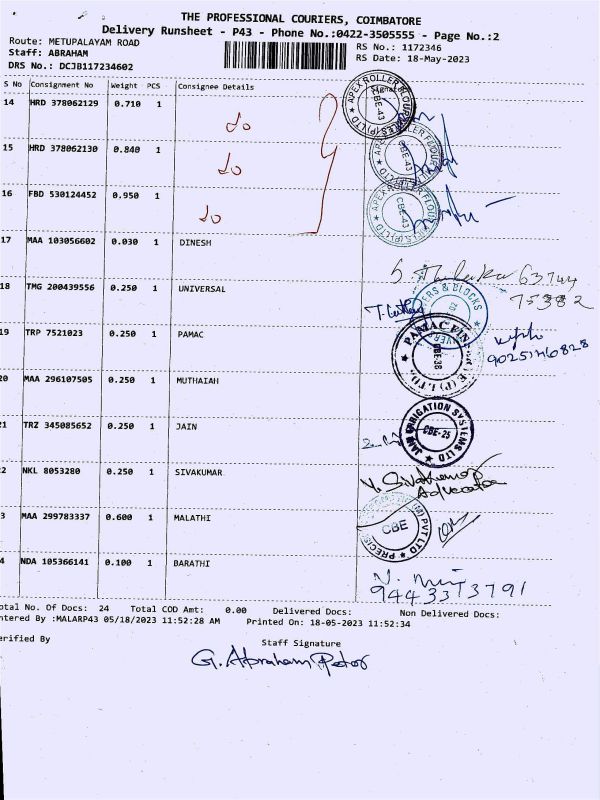 THE PROFESSIONAL COURIERS, COIMBATORE
Delivery Runsheet - P43 - Phone No.:0422-3505555 - Page No.:2
Route: METUPALAYAM ROAD
Staff: ABRAHAM
DRS No.: DCJB117234602
RS No.: 1172346
RS Date: 18-May-2023
S No Consignment No Weight PCS Consignee Details Signature
14 HRD 378062129 0.710 1 do
APEX ROLLER FLOUR MILLS (P) LTD CBE-43
15 HRD 378062130 0.840 1 do
APEX ROLLER FLOUR CBE-43
16 FBD 530124452 0.950 1 do
APEX ROLLER FLOUR MILLS (P) LTD CBE-43
17 MAA 103056602 0.030 1 DINESH
S. 63744
75382
18 TMG 200439556 0.250 1 UNIVERSAL
& BLOCKS
19 TRP 7521023 0.250 1 PAMAC
PAMAC (P) LTD. CBE-38
9025146828
20 MAA 296107505 0.250 1 MUTHAIAH
21 TRZ 345085652 0.250 1 JAIN
JAIN IRRIGATION SYSTEMS LTD CBE-25
22 NKL 8053280 0.250 1 SIVAKUMAR
V. Sivakumar
Advocate
3 MAA 299783337 0.600 1 MALATHI
PVT LTD CBE
4 NDA 105366141 0.100 1 BARATHI
9443373791
otal No. Of Docs: 24 Total COD Amt: 0.00 Delivered Docs: Non Delivered Docs:
ntered By :MALARP43 05/18/2023 11:52:28 AM Printed On: 18-05-2023 11:52:34
erified By
Staff Signature
G. Abraham Peter